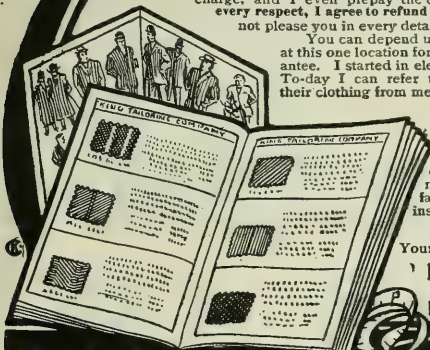 charge, and I even prepay the
every respect, I agree to refund
not please you in every deta
You can depend u
at this one location for
antee. I started in ele
To-day I can refer t
their clothing from me
KING TAILORING COMPANY
KING TAILORING COMPANY
fa
ins
Your